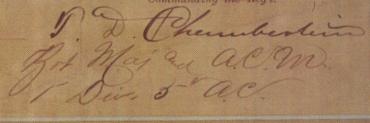 Commanding the Reg't.
T. D. Chamberlin
Bvt Maj and A.C.M.
1 Div. 5" A.C.